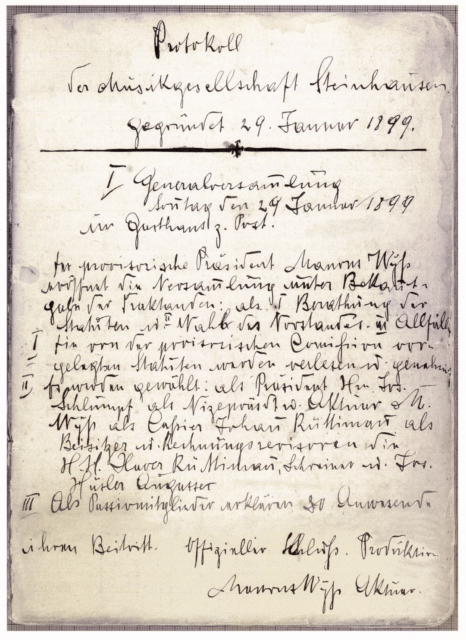 Protokoll
der Musikgesellschaft Steinhausen
gegründet 29. Januar 1899.
I Generalversammlung
Sontag den 29 Januar 1899
im Gasthaus z. Post.
Der provisorische Präsident Wyß
eröffnet die Versammlung unter Bekannt-
gabe der Traktanden: als I Berathung der
Statuten u. II Wahl des Vorstandes. III Allfäll
I Die von der provisorischen Comission vor-
gelegten Statuten werden verlesen u. geneh
II Es werden gewählt: als Präsident Hr. Jos.
Schlumpf als Vizepräsidt u. Aktuar M.
Wyß als Cassier Johan Rüttimau als
Beisitzer u. Rechnungsrevisoren die
H.H. Xaver Rüttimau, Schreiner u. Jos.
Hüsler
III Als Passivmitglieder erklären 30 Anwesende
ihren Beitritt. Offizieller Schluß. Produktion
Wyß Aktuar.